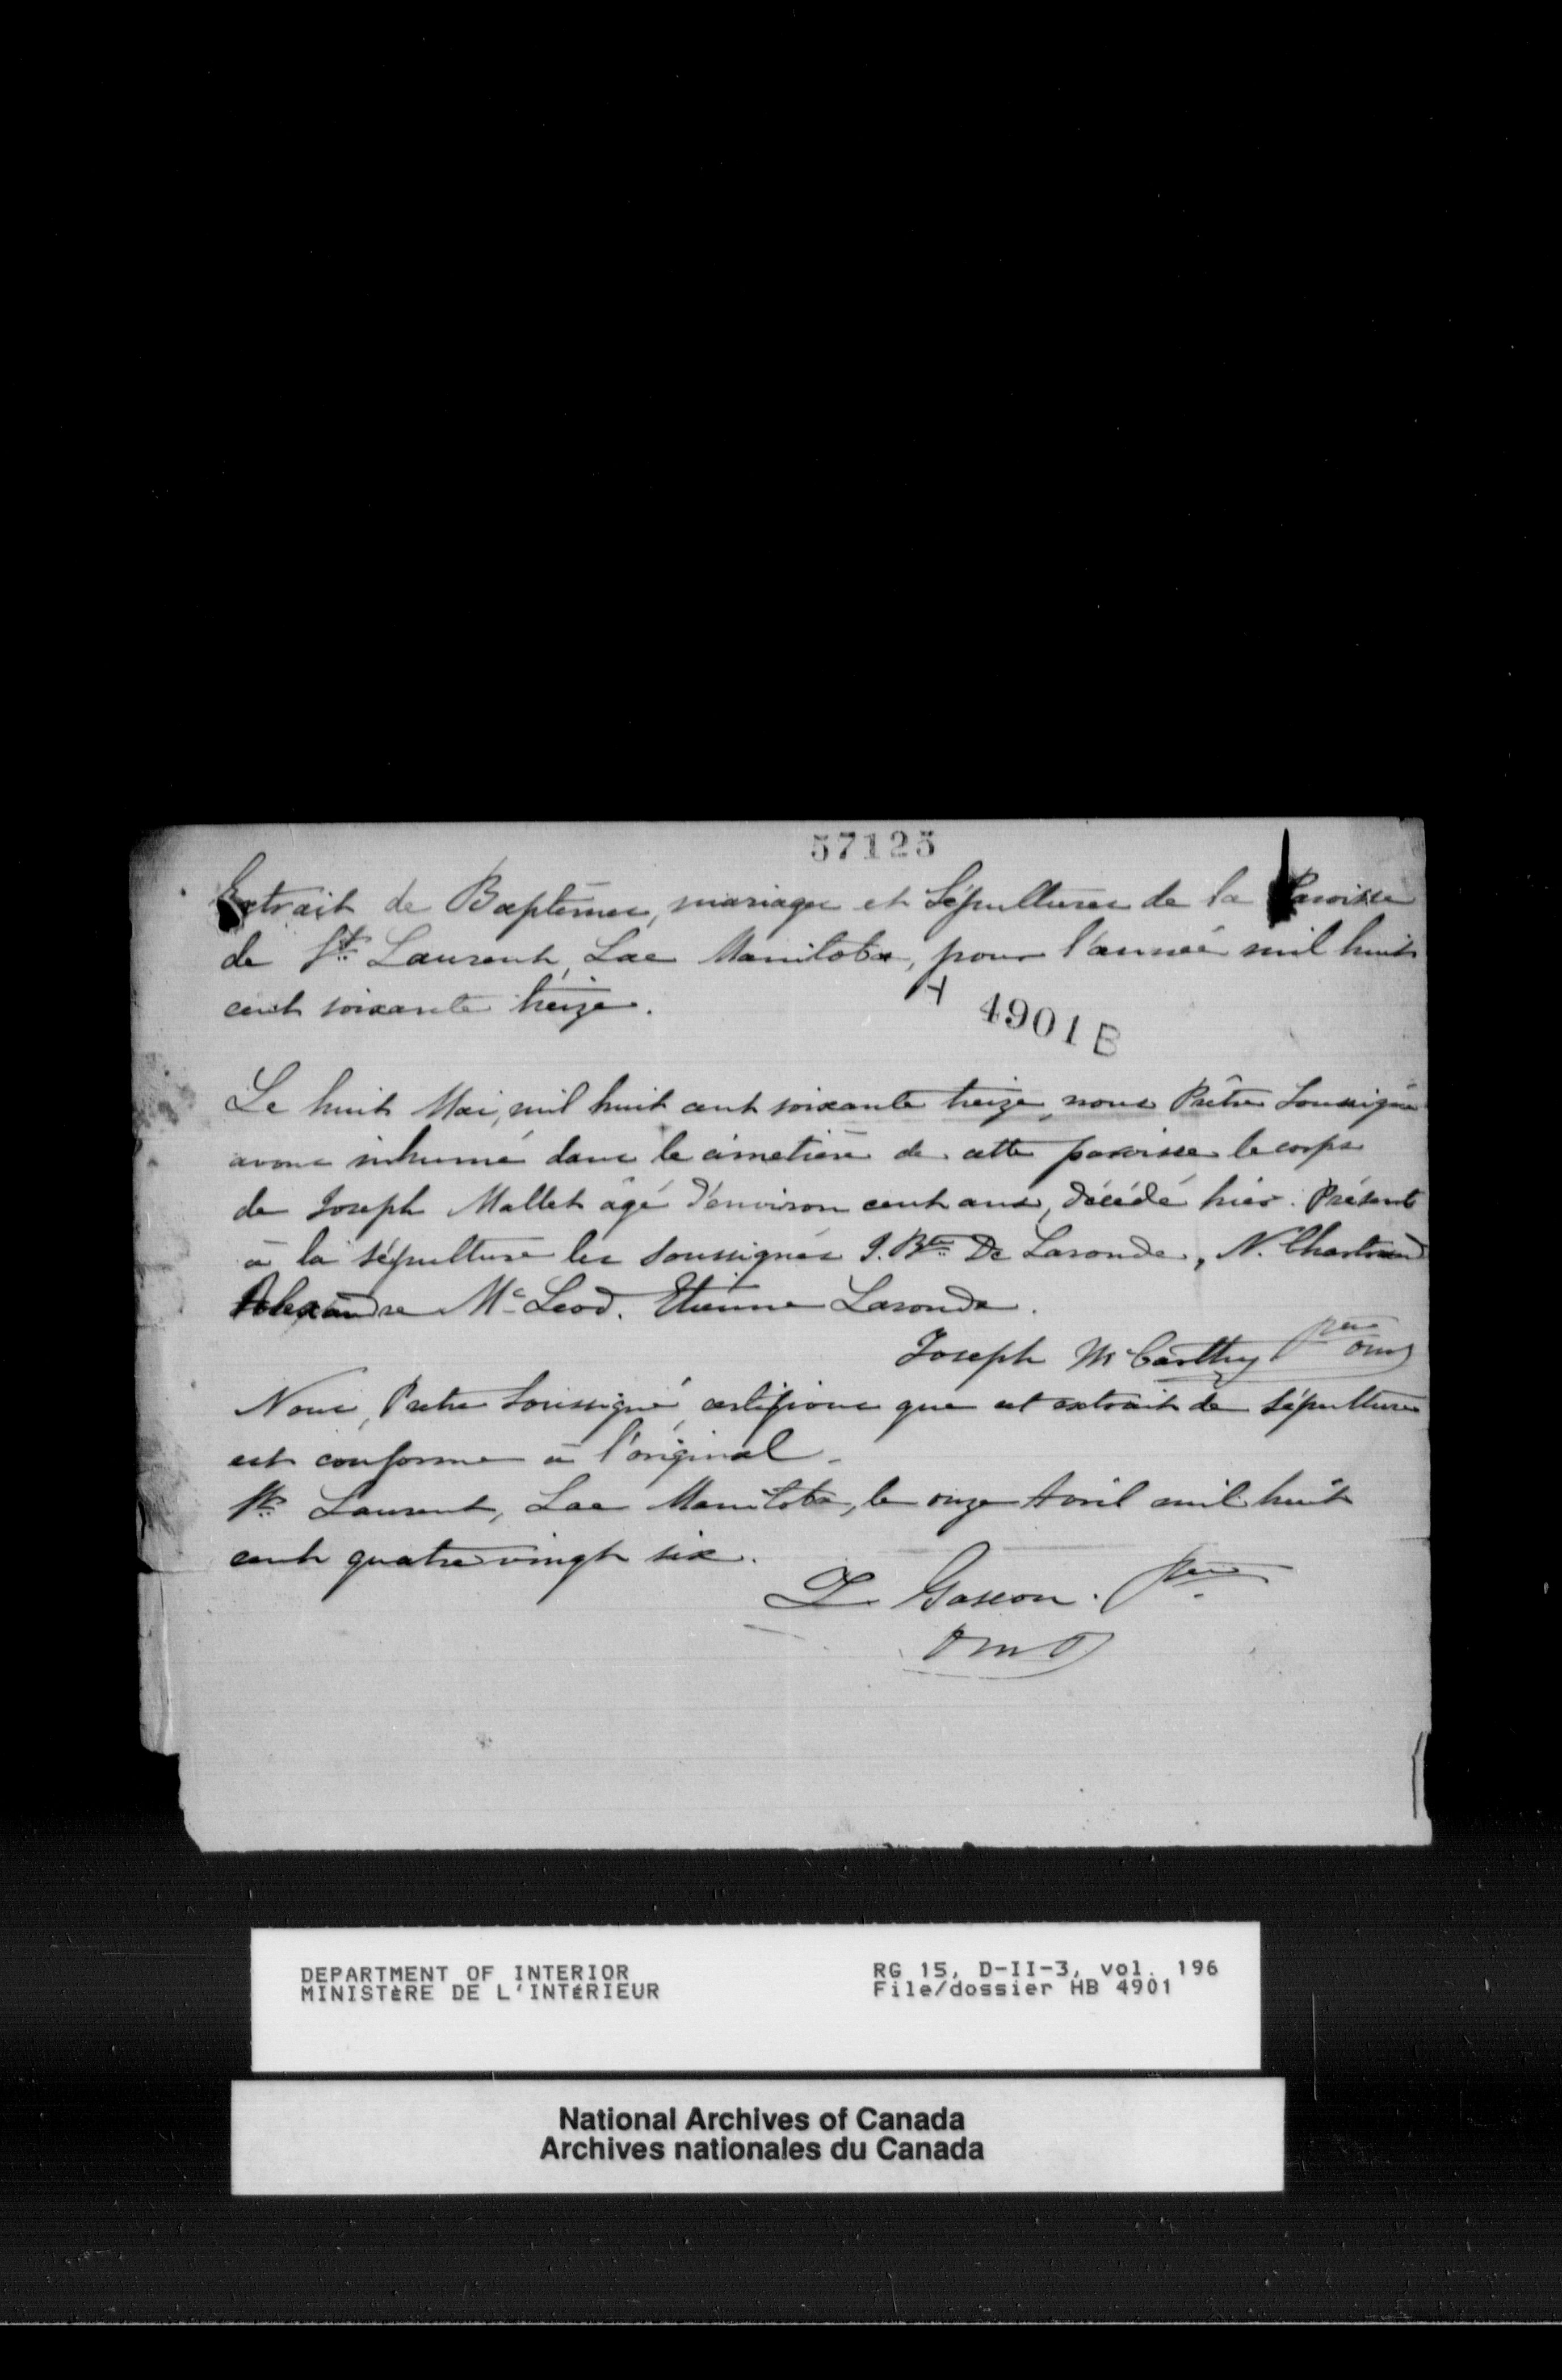 57125
Extrait de Baptêmes, mariages et Sépultures de la Paroisse
de St. Laurent, Lac Manitoba, pour l'année mil huit
cent soixante treize.
H 4901 B
Le huit Mai, mil huit cent soixante treize, nous Prêtre Soussigné
avons inhumé dans le cimetière de cette paroisse le corps
de Joseph Mallet âgé d'environ cent ans, décédé hier. Présents
à la sépulture les soussignés J. Bte. De Laronde, N. Chartrand
Alexandre Mc Leod. Etienne Laronde.
Joseph McCarthy Ptre omi
Nous, Prêtre Soussigné, certifions que cet extrait de Sépultures
est conforme à l'original.
St. Laurent, Lac Manitoba, le onze Avril mil huit
cent quatre vingt six.
L. Gascon. Ptre
OMI
DEPARTMENT OF INTERIOR RG 15, D-II-3, vol. 196
MINISTÈRE DE L'INTÉRIEUR File/dossier HB 4901
National Archives of Canada
Archives nationales du Canada